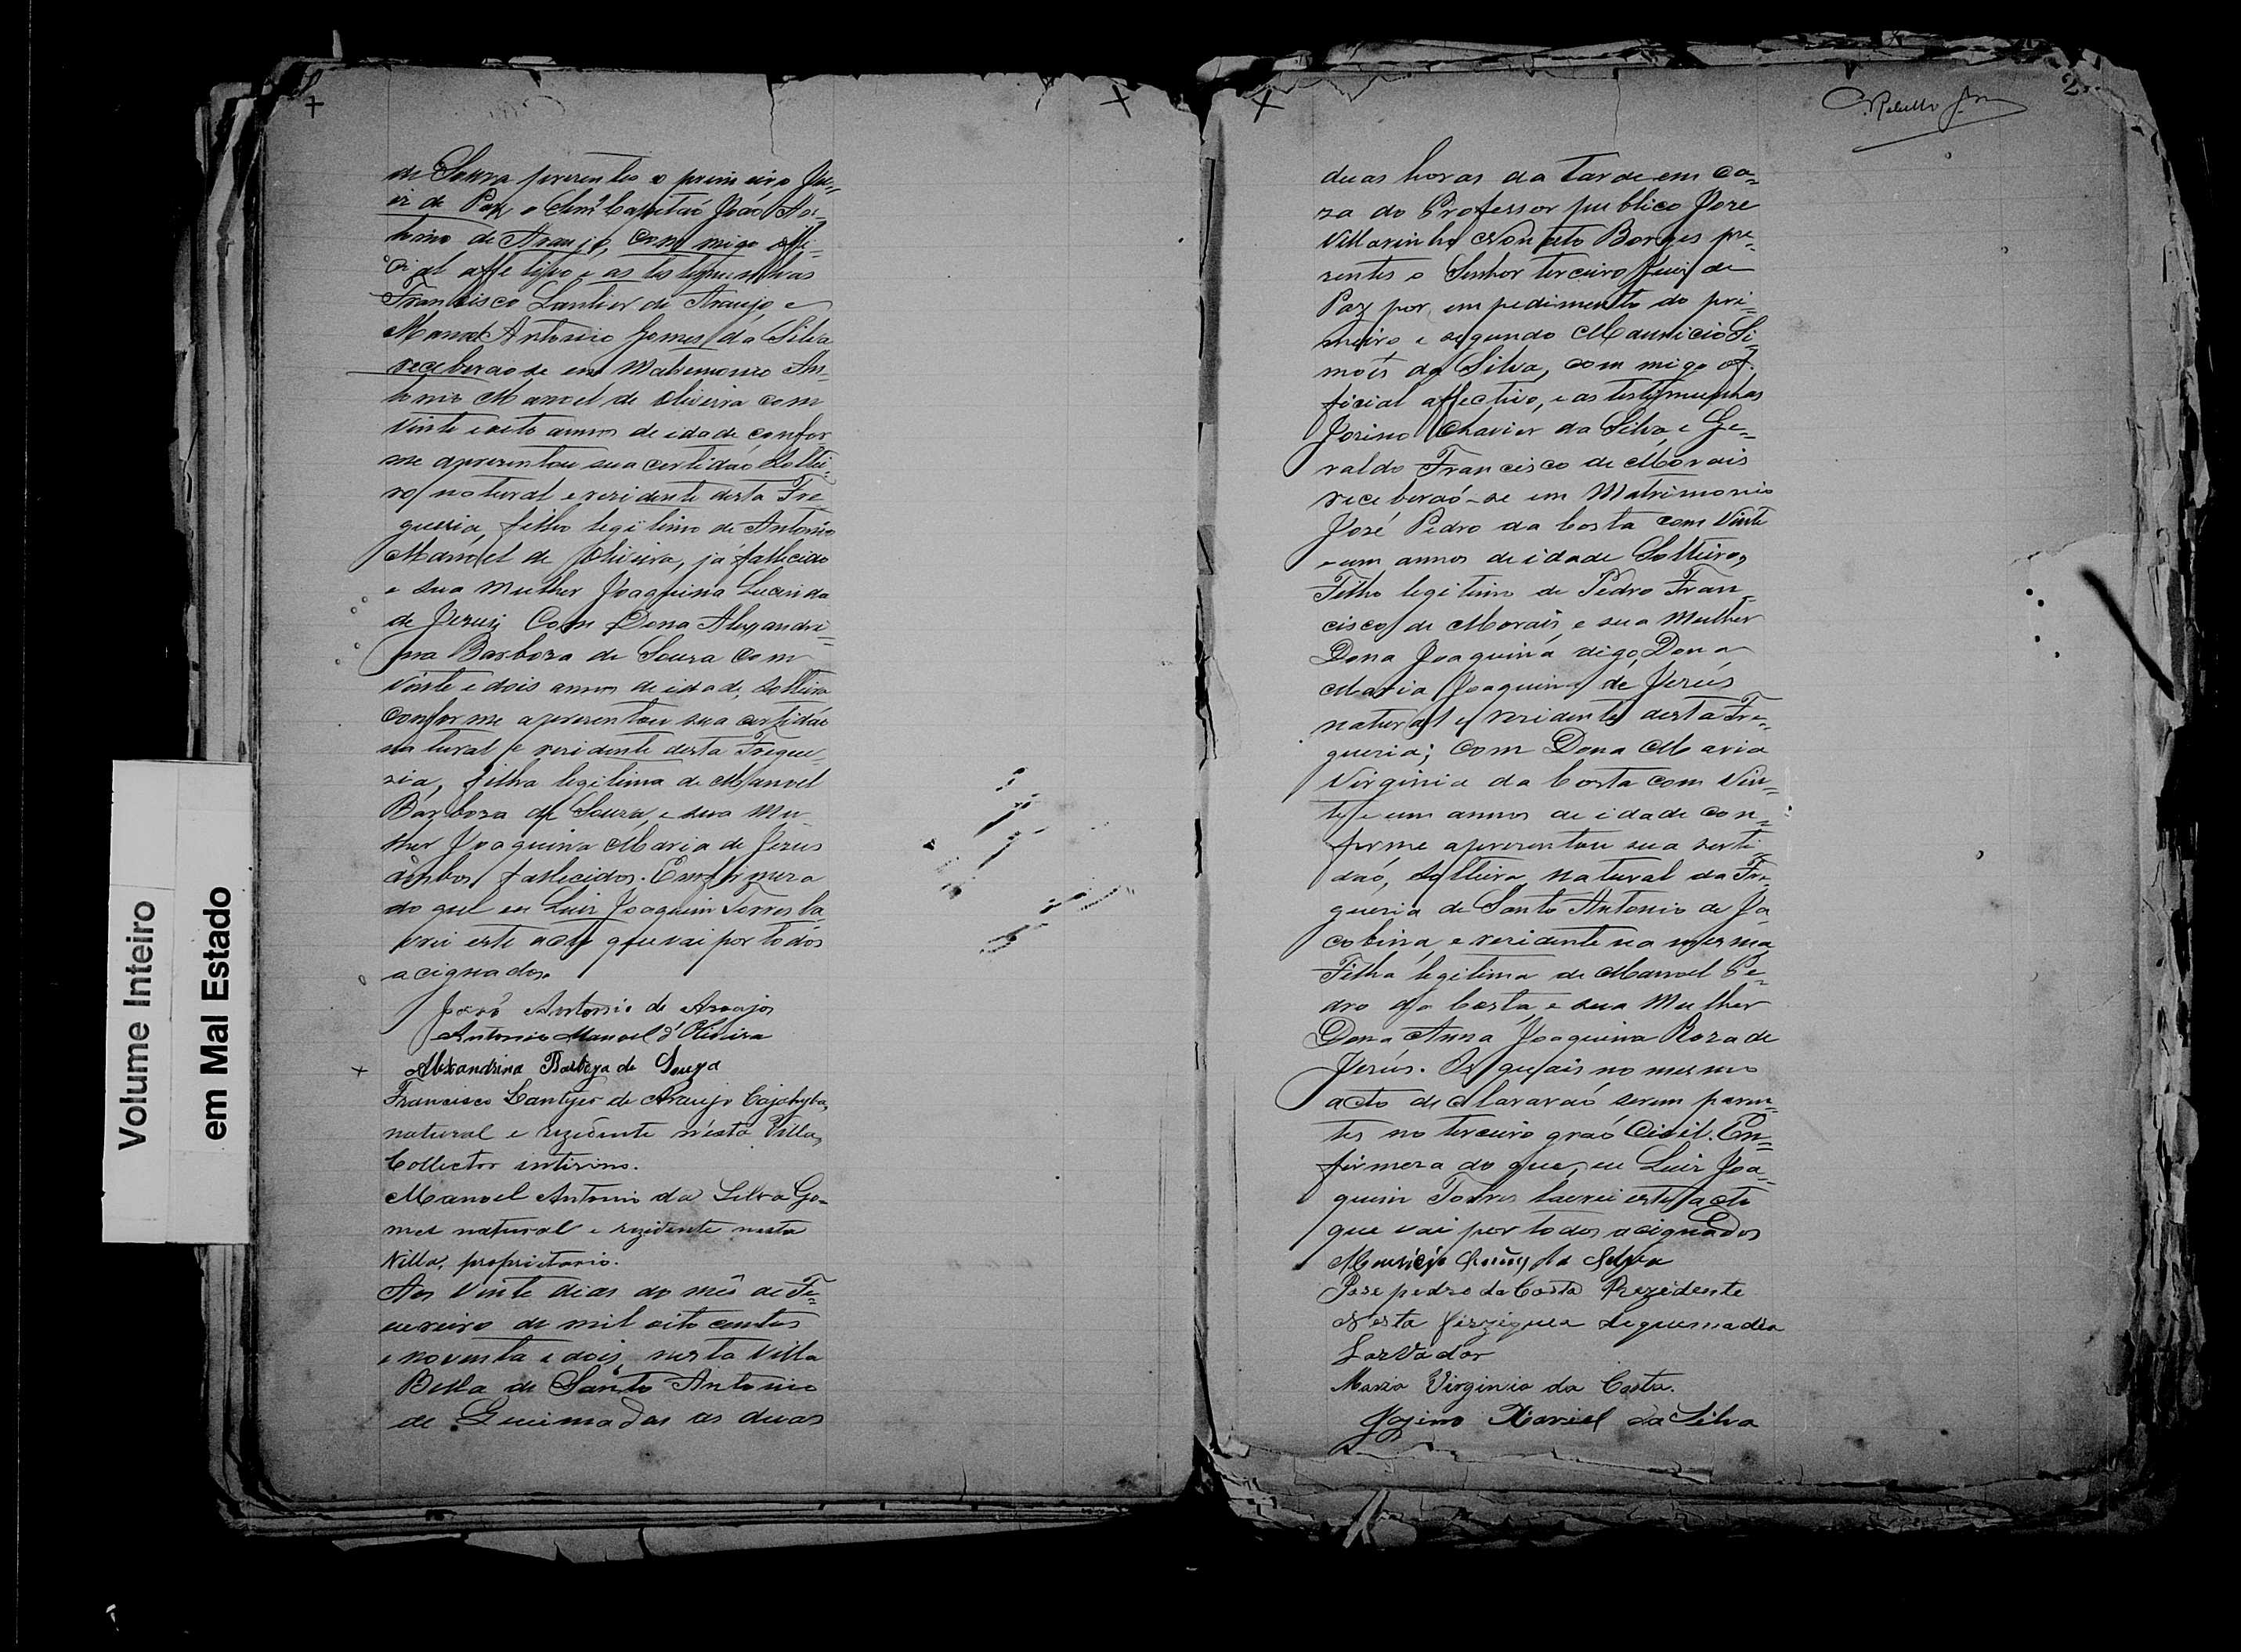 de Souza presentes o primeiro Ju=
iz de Paz o Cam.º Capitão João An=
tonio de Araujo, com migo offi=
cial affetivo e as testymunhas
Francisco Lantier de Araujo e
Manoel Antonio Gomes da Silva
receberaose em Matrimonio An=
tonio Manoel de Oliveira com
Vinte e oito annos de idade, confor=
me aprezentou sua certidaó Soltei=
ro, natural e rezidente desta Fre
guezia, filho legitimo de Antonio
Manoel de Oliveira, já fallecido
e sua Mulher Joaquina Lucinda
de Jezus; Com Dona Alexandri=
na Barboza de Souza com
Vinte e dois annos de idade, Solteira
Conforme aprezentou sua certidão
natural e rezidente desta Fregue=
zia, filha legitima de Manoel
Barboza de Souza, e sua Mu
lher Joaquina Maria de Jezus
ambos fallecidos. Em firmeza
do qul eu Luiz Joaquim Torres la
vrei este acto que vai por todos
acignados.
João Antonio de Araujo
Antonio Manoel d'Oliveira
Alexandrina Barboza de Souza
Francisco Lantyer de Araujo Cajahyba,
natural e rezidente n'esta Villa,
Collector interino.
Manoel Antonio da Silva Go=
mes natural e rezidente nesta
Villa, proprietario.
Aos Vinte dias do mês de Fe=
vereiro de mil oito centos
e noventa e dois, nesta Villa
Bella de Santo Antonio
de Queimadas as duas
2
C. Rebello Jor
duas horas da tarde em ca=
za do Professor publico Jose
Villarinho Nonato Borges pre=
zentes o Senhor terceiro Juiz de
Paz por empedimento do pri=
meiro e segundo Mauricio Si=
moẽs da Silva, com migo of=
ficial affectivo, e as testymunhas
Jozino Chavier da Silva, e Ge=
raldo Francisco de Morais
receberaó-se em Matrimonio
José Pedro da Costa com Vinte
e um annos de idade Solteiro,
Filho legitimo de Pedro Fran=
cisco de Morais, e sua Mulher
Dona Joaquina digo, Dona
Maria Joaquina de Jezús
natural e rezidente desta Fre=
guezia; Com Dona Maria
Virginia da Costa com Vin=
te e um annos de idade con=
forme aprezentou sua serti=
daó, Solteira, natural da Fre
guezia de Santo Antonio de Ja=
cobina, e rezidente na mesma
Filha legitima de Manoel Pe=
dro da Costa, e sua Mulher
Dona Anna Joaquina Roza de
Jezús. Os quais no mesmo
acto declararaó serem paren=
tes no terceiro graó Civil. Em=
firmeza do que, eu Luiz Joa=
quim Torres lavrei este acto
que vai por todos acignados
Mauricio Simões da Silva
Jose pedro da Costa Rezidente
Nesta de quemadas
Larvador
Maria Virginia da Costa.
Jozino Xaviel da Silva
Volume Inteiro
em Mal Estado